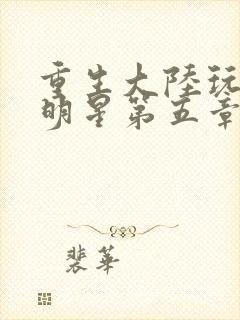 重生大陸玩
明星第五章
裴華